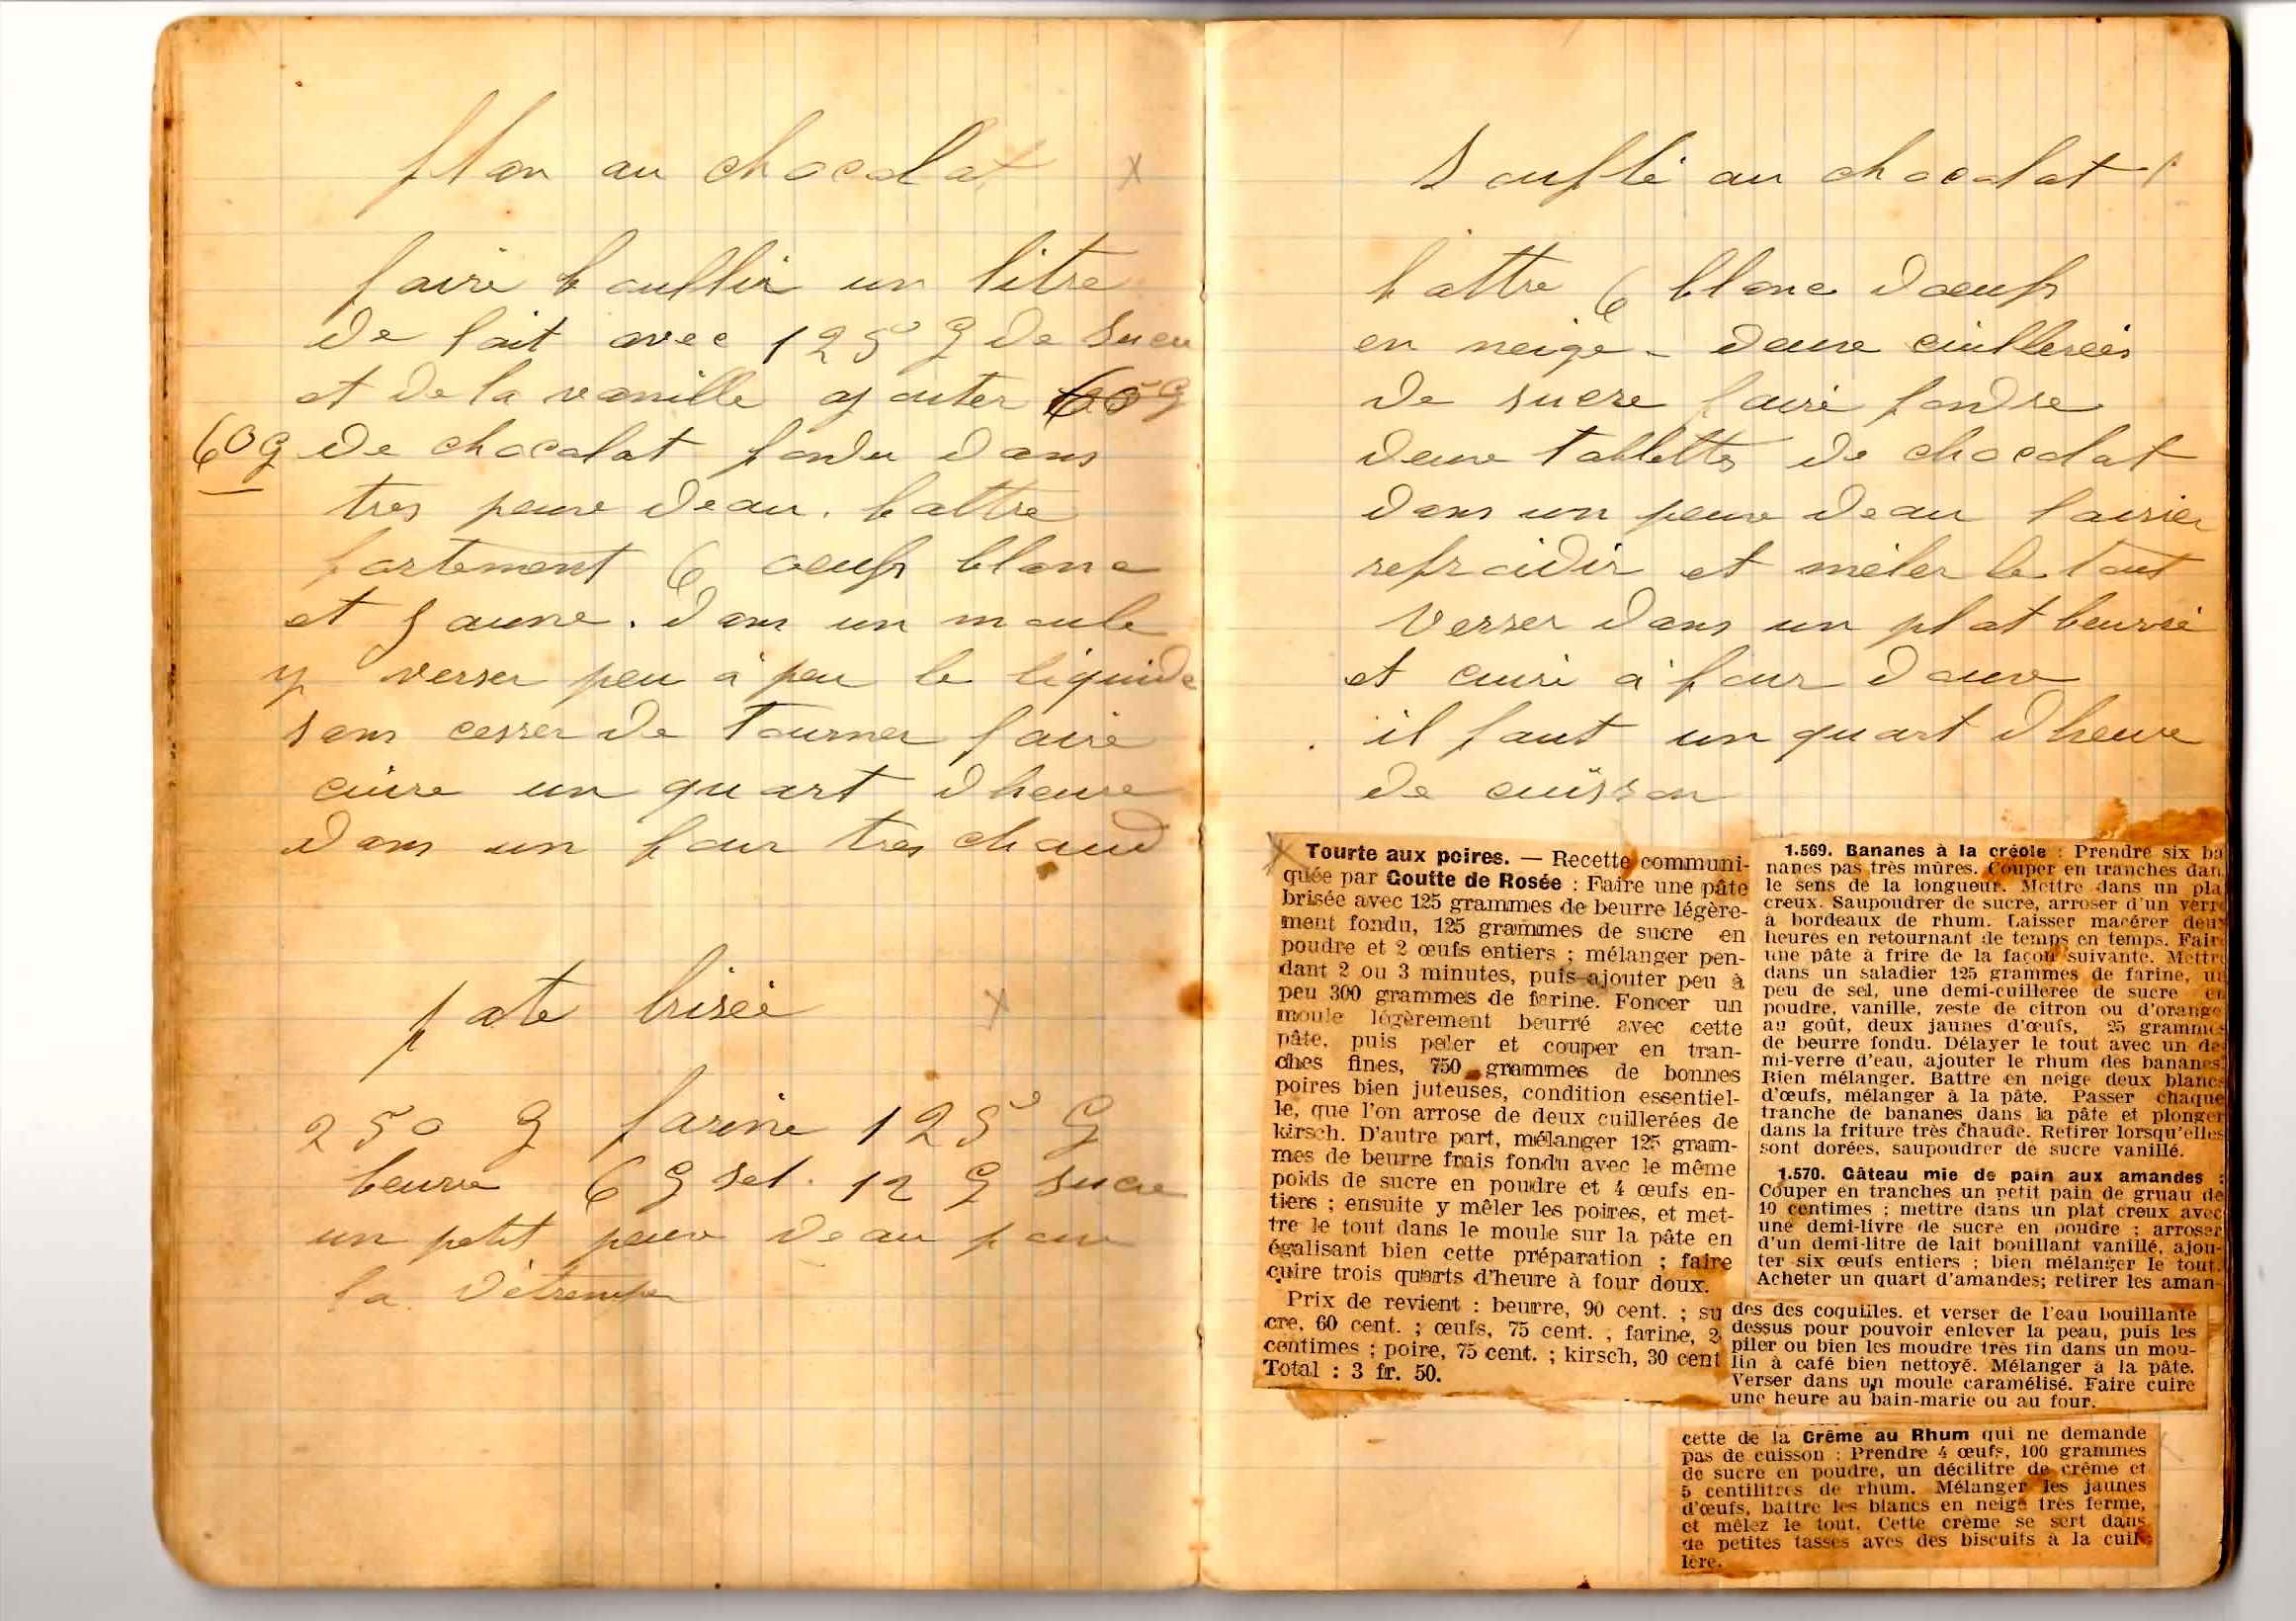 flan au chocolat x
faire boullir un litre
de lait avec 125 g de sucre
et de la vanille ajouter
60g de chocolat fondu dans
tres peux deau. battre
fortement 6 oeufs blanc
et jaune. dans un moule
y verser peu à peu le liquide
sans cesser de tourner faire
cuire un quart dheure
dans un four tres chaud
pate brisée x
250 g farine 125 g
beurre 6 g sel. 12 g sucre
un petit peux deau pour
la détremper
Souflé au chocolat
battre 6 blanc doeufs
en neige - deux cuillerées
de sucre faire fondre
deux tablettes de chocolat
dans un peux deau laisser
refroidir et mêler le tout
Verser dans un plat beurré
et cuire à four doux
il faut un quart dheure
de cuisson
Tourte aux poires. — Recette communi-
quée par Goutte de Rosée : Faire une pâte
brisée avec 125 grammes de beurre légère-
ment fondu, 125 grammes de sucre en
poudre et 2 œufs entiers ; mélanger pen-
dant 2 ou 3 minutes, puis ajouter peu à
peu 300 grammes de farine. Foncer un
moule légèrement beurré avec cette
pâte, puis peler et couper en tran-
ches fines, 750 grammes de bonnes
poires bien juteuses, condition essentiel-
le, que l'on arrose de deux cuillerées de
kirsch. D'autre part, mélanger 125 gram-
mes de beurre frais fondu avec le même
poids de sucre en poudre et 4 œufs en-
tiers ; ensuite y mêler les poires, et met-
tre le tout dans le moule sur la pâte en
égalisant bien cette préparation ; faire
cuire trois quarts d'heure à four doux.
Prix de revient : beurre, 90 cent. ; su
cre, 60 cent. ; œufs, 75 cent. ; farine, 2
centimes ; poire, 75 cent. ; kirsch, 30 cent
Total : 3 fr. 50.
1.569. Bananes à la créole : Prendre six ba
nanes pas très mûres. Couper en tranches dan
le sens de la longueur. Mettre dans un pla
creux. Saupoudrer de sucre, arroser d'un verre
à bordeaux de rhum. Laisser macérer deux
heures en retournant de temps en temps. Faire
une pâte à frire de la façon suivante. Mettre
dans un saladier 125 grammes de farine, un
peu de sel, une demi-cuillerée de sucre en
poudre, vanille, zeste de citron ou d'orange
au goût, deux jaunes d'œufs, 25 grammes
de beurre fondu. Délayer le tout avec un de
mi-verre d'eau, ajouter le rhum des bananes
Bien mélanger. Battre en neige deux blancs
d'œufs, mélanger à la pâte. Passer chaque
tranche de bananes dans la pâte et plonger
dans la friture très chaude. Retirer lorsqu'elles
sont dorées, saupoudrer de sucre vanillé.
1.570. Gâteau mie de pain aux amandes :
Couper en tranches un petit pain de gruau de
10 centimes ; mettre dans un plat creux avec
une demi-livre de sucre en poudre ; arroser
d'un demi-litre de lait bouillant vanillé, ajou-
ter six œufs entiers ; bien mélanger le tout.
Acheter un quart d'amandes; retirer les aman-
des des coquilles, et verser de l'eau bouillante
dessus pour pouvoir enlever la peau, puis les
piler ou bien les moudre très fin dans un mou-
lin à café bien nettoyé. Mélanger à la pâte.
Verser dans un moule caramélisé. Faire cuire
une heure au bain-marie ou au four.
cette de la Crême au Rhum qui ne demande
pas de cuisson : Prendre 4 œufs, 100 grammes
de sucre en poudre, un décilitre de crême et
5 centilitres de rhum. Mélanger les jaunes
d'œufs, battre les blancs en neige très ferme,
et mêlez le tout. Cette crème se sert dans
de petites tasses aves des biscuits à la cuil-
lère.